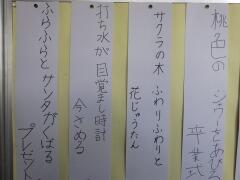 桃色の シャワーをあびる
卒業式
サクラの木 ふわりふわりと
花じゅうたん
打ち水が 目覚まし時計
今さめる
ふらふらと サンタがくばる
プレゼント